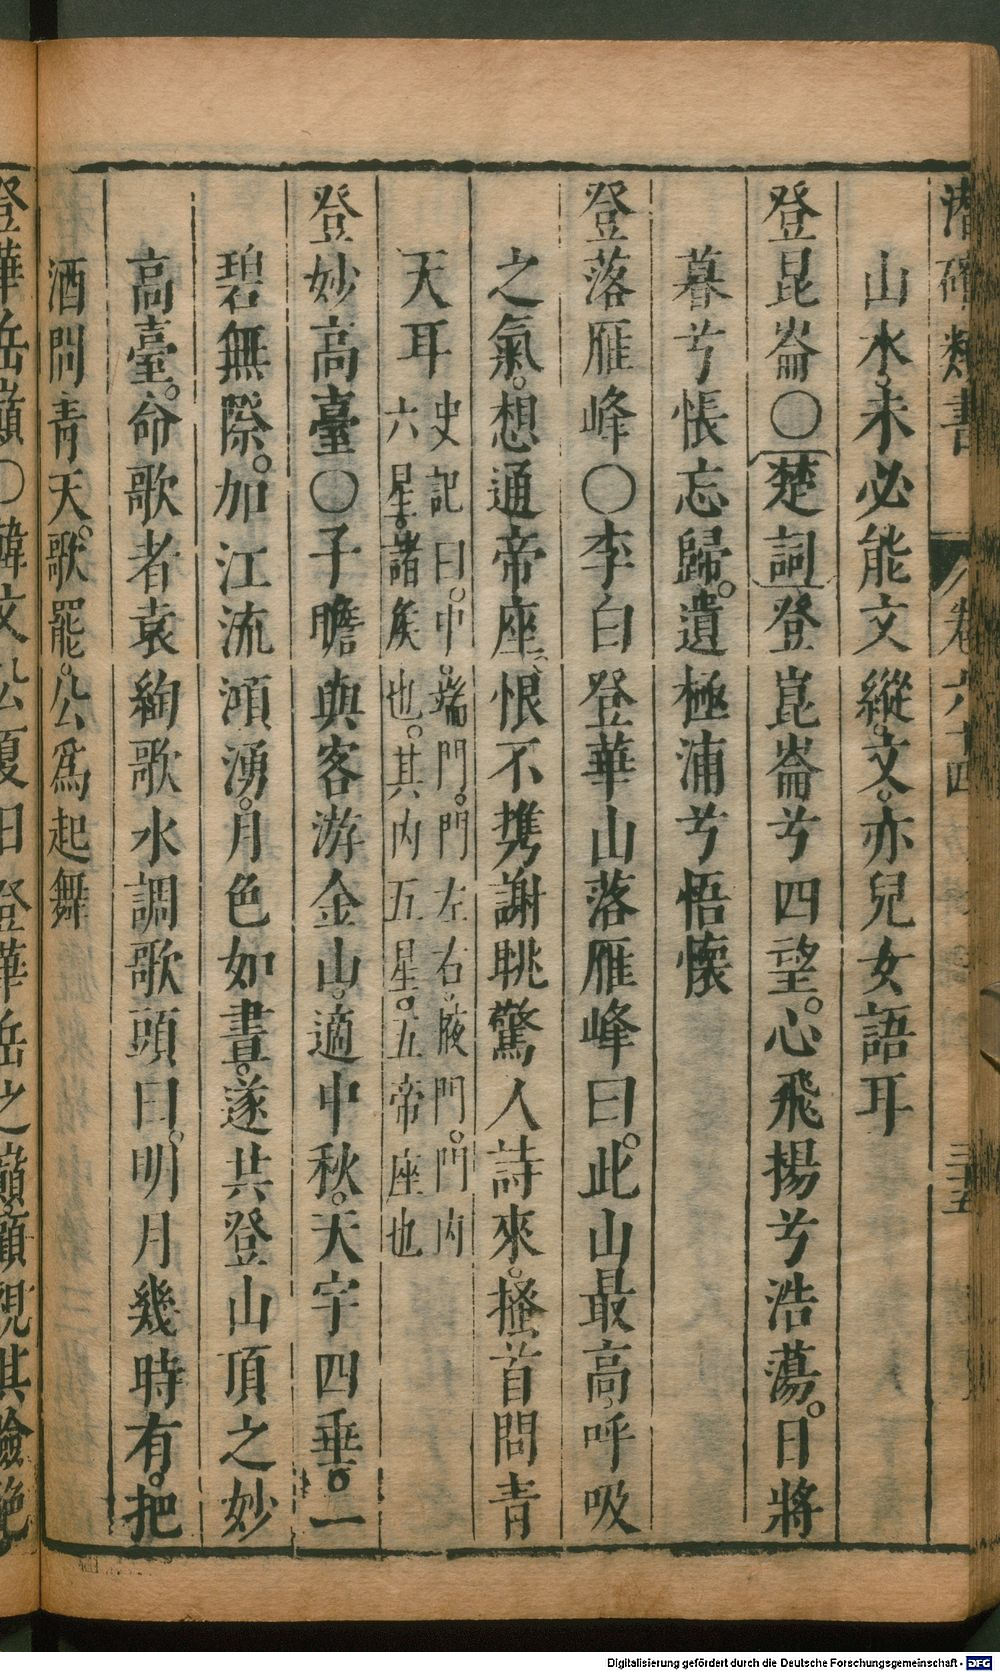 潛確類書 卷六十四 三五
山水。未必能文。縱文。亦兒女語耳
登昆崙〇楚詞登崑崙兮四望。心飛揚兮浩蕩。日將
暮兮悵忘歸。遺極浦兮悟懷
登落雁峰〇李白登華山落雁峰曰。此山最高、呼吸
之氣。想通帝座、恨不携謝眺驚人詩來。搔首問青
天耳
史記曰。中。端門。門左右。掖門。門內
六星。諸矦也。其內五星。五帝座也
登妙高臺〇子瞻與客游金山。適中秋。天宇四垂。一
碧無際。加江流澒湧。月色如晝。遂共登山頂之妙
高臺。命歌者袁綯歌水調歌頭曰。明月幾時有。把
酒問青天。歌罷。公爲起舞
登華岳巔〇韓文公夏日登華岳之巔。顧視其險絶
Digitalisierung gefördert durch die Deutsche Forschungsgemeinschaft - DFG